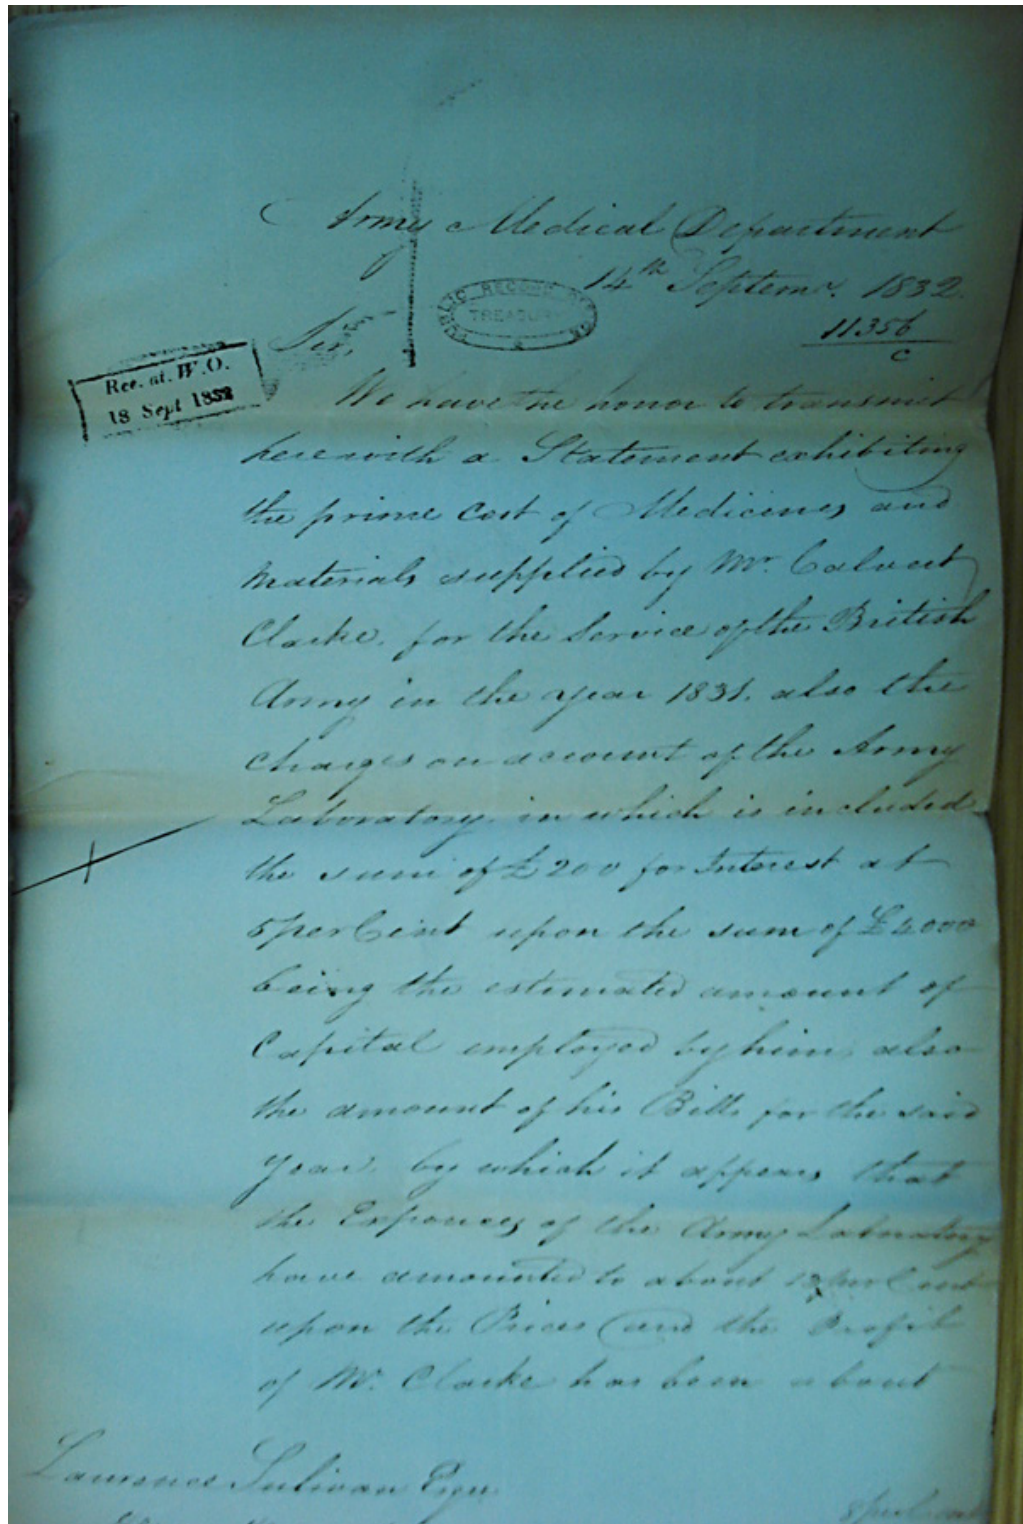 Army Medical Department
14th Septemr. 1832.
PUBLIC RECORD OFFICE
TREASURY
11356
C
Sir,
Rec. at. W.O.
18 Sept 1832
We have the honor to transmit
herewith a Statement exhibiting
the prime Cost of Medicines and
Materials supplied by Mr. Calvert
Clarke, for the Service of the British
Army in the year 1831. also the
charges on account of the Army
Laboratory in which is included
the sum of £200 for Interest at
5 per Cent upon the sum of £4000
being the estimated amount of
Capital employed by him, also
the amount of his Bills for the said
year, by which it appears that
the Expences of the Army Laboratory
have amounted to about per Cent
upon the Prices and the Profit
of Mr. Clarke has been about
Laurence Sulivan Esqr.